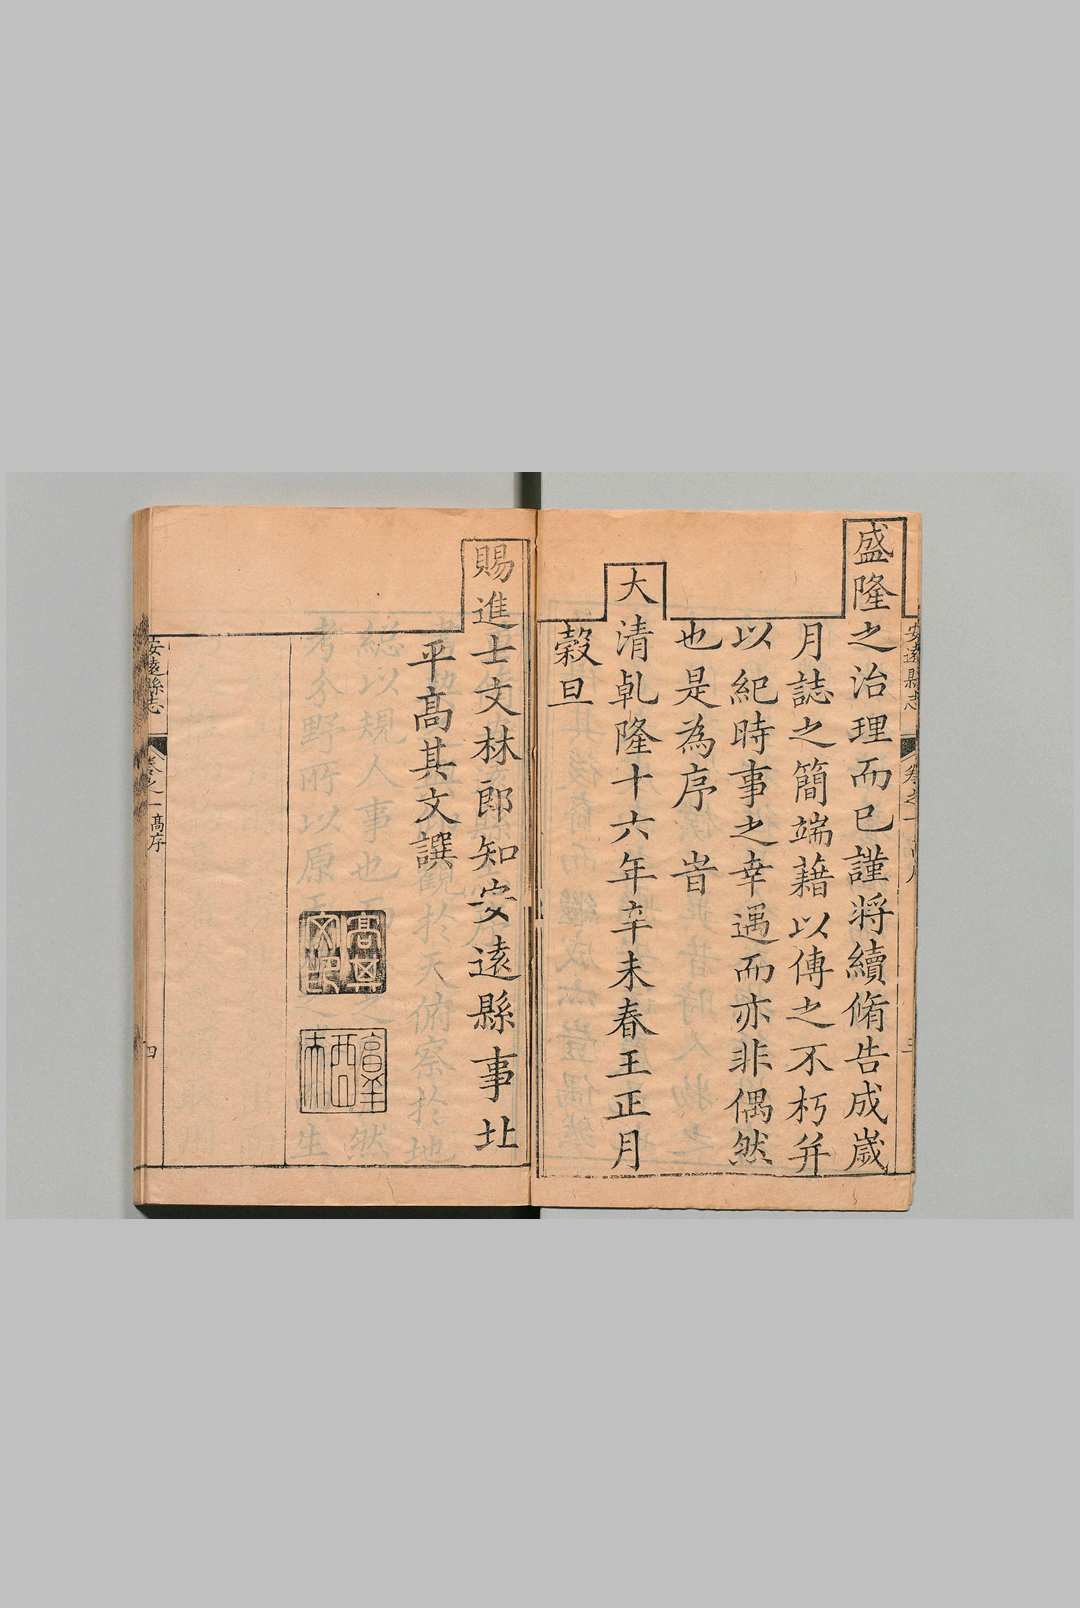 盛隆之治理而已謹將續脩告成歲
月誌之簡端藉以傳之不朽并
以紀時事之幸遇而亦非偶然
也是為序 旹
大清乹隆十六年辛未春王正月
穀旦
賜進士文林郎知安遠縣事北
平高其文譔
安遠縣志 卷之一 三
安遠縣志 卷之一 高序 四